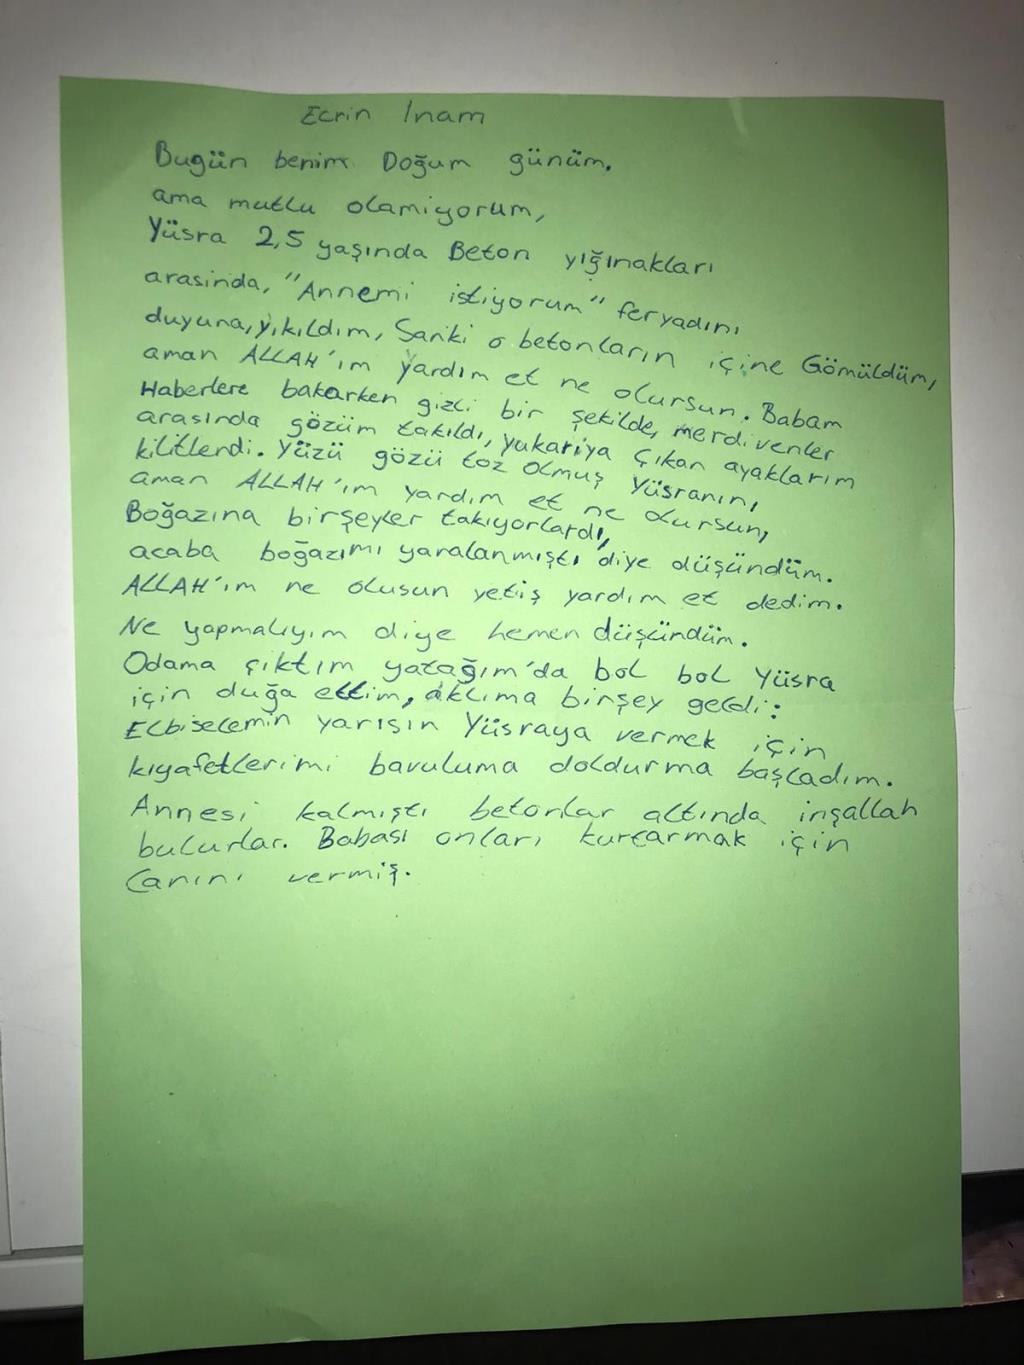 Ecrin Inam
Bugün benim Doğum günüm.
ama mutlu olamiyorum,
Yüsra 2,5 yaşında Beton yığınakları
arasinda, "Annemi istiyorum" feryadını
duyuna, yıkıldım, Sanki o betonların içine Gömüldüm,
aman ALLAH'ım yardım et ne olursun. Babam
Haberlere bakarken gizli bir şekilde, merdivenler
arasında gözüm takıldı, yukariya çıkan ayaklarım
kilitlendi. Yüzü gözü toz olmuş Yüsranın,
aman ALLAH'ım yardım et ne olursun,
Boğazına birşeyler takıyorlardı,
acaba boğazımı yaralanmıştı diye düşündüm.
ALLAH'ım ne olusun yetiş yardım et dedim.
Ne yapmalıyım diye hemen düşündüm.
Odama çıktım yatağım'da bol bol Yüsra
için duğa ettim, aklıma birşey geldi:
Elbiselemin yarısın Yüsraya vermek için
kıyafetlerimi bavuluma doldurma başladım.
Annesi kalmıştı betonlar altında inşallah
bulurlar. Babası onları kurtarmak için
Canını vermiş.